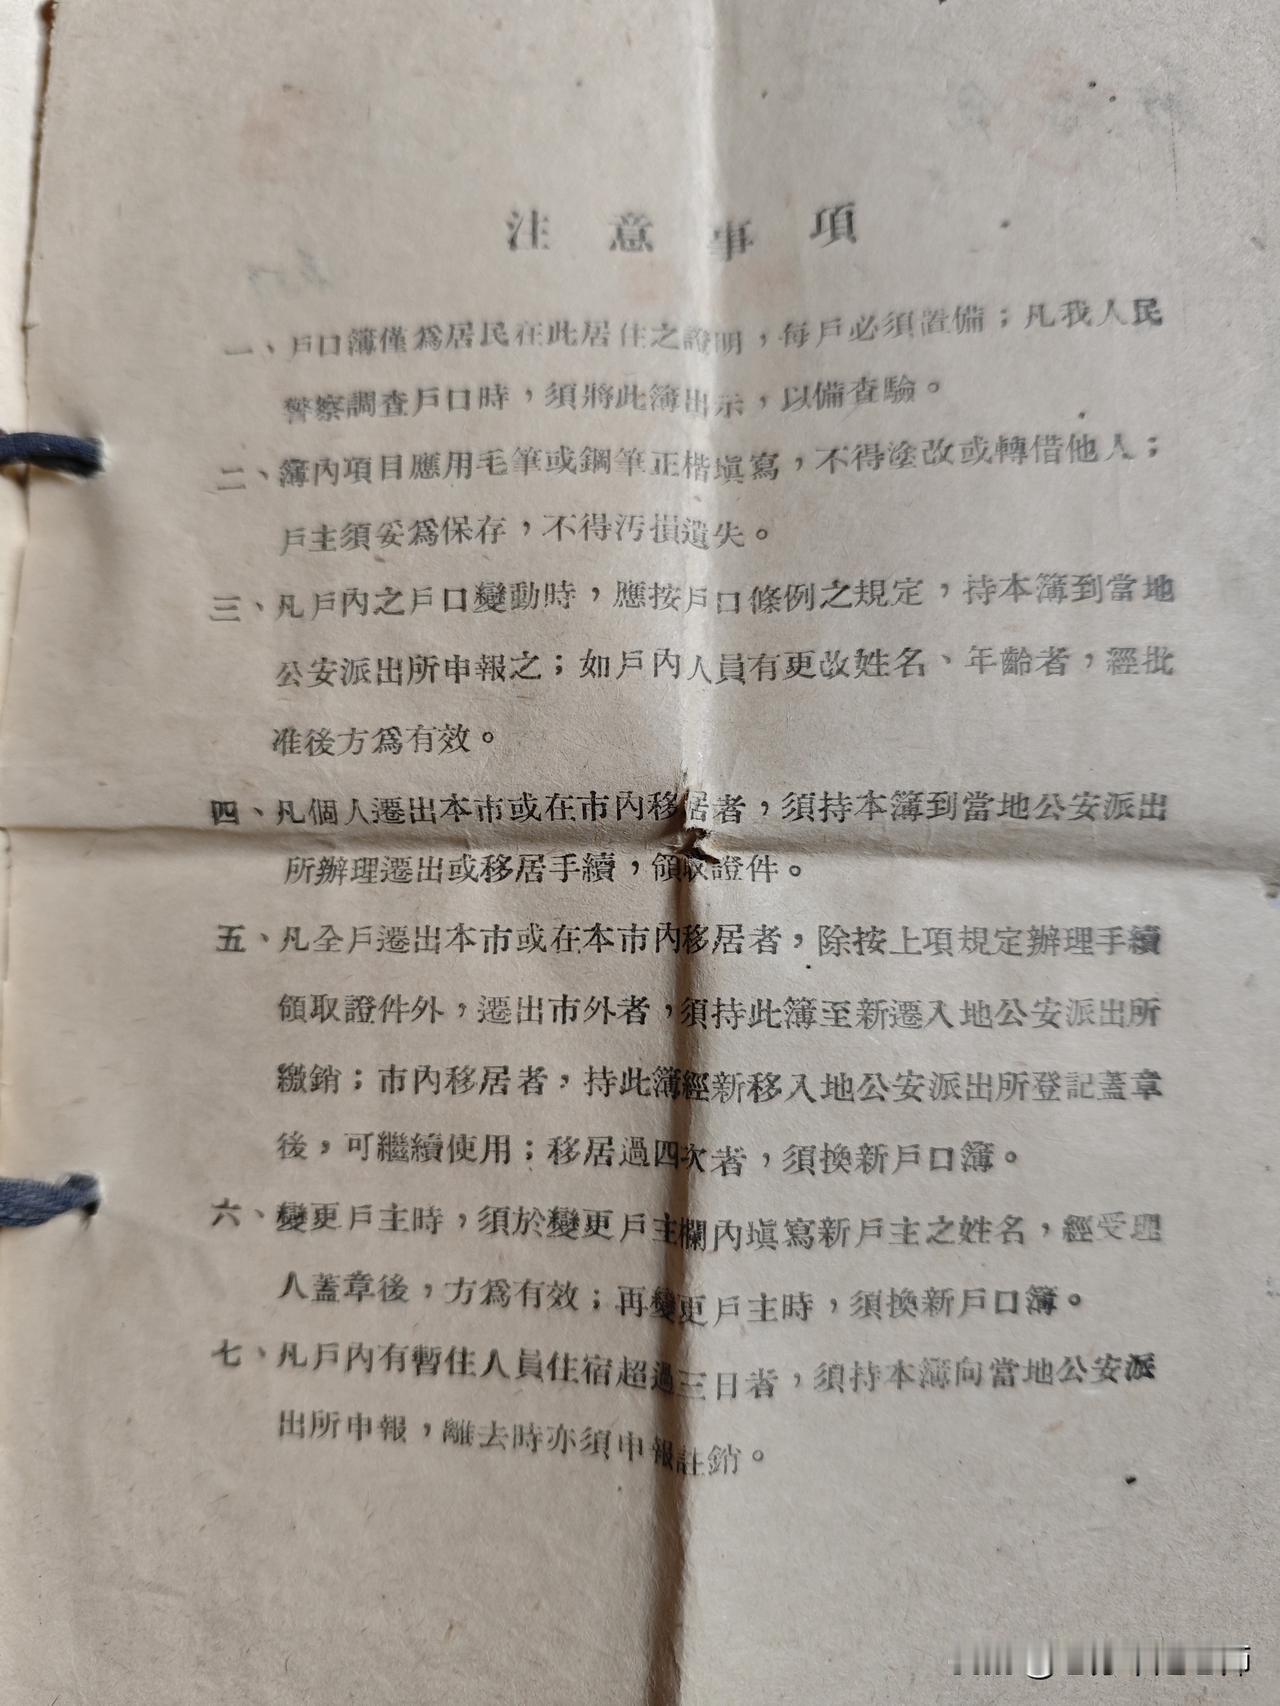 注意事項
一、戶口簿僅爲居民在此居住之證明，每戶必須置備；凡我人民
警察調查戶口時，須將此簿出示，以備查驗。
二、簿內項目應用毛筆或鋼筆正楷塡寫，不得塗改或轉借他人；
戶主須妥爲保存，不得汚損遺失。
三、凡戶內之戶口變動時，應按戶口條例之規定，持本簿到當地
公安派出所申報之；如戶內人員有更改姓名、年齡者，經批
准後方爲有效。
四、凡個人遷出本市或在市內移居者，須持本簿到當地公安派出
所辦理遷出或移居手續，領取證件。
五、凡全戶遷出本市或在本市內移居者，除按上項規定辦理手續
領取證件外，遷出市外者，須持此簿至新遷入地公安派出所
繳銷；市內移居者，持此簿經新移入地公安派出所登記蓋章
後，可繼續使用；移居過四次者，須換新戶口簿。
六、變更戶主時，須於變更戶主欄內塡寫新戶主之姓名，經受理
人蓋章後，方爲有效；再變更戶主時，須換新戶口簿。
七、凡戶內有暫住人員住宿超過三日者，須持本簿向當地公安派
出所申報，離去時亦須申報註銷。